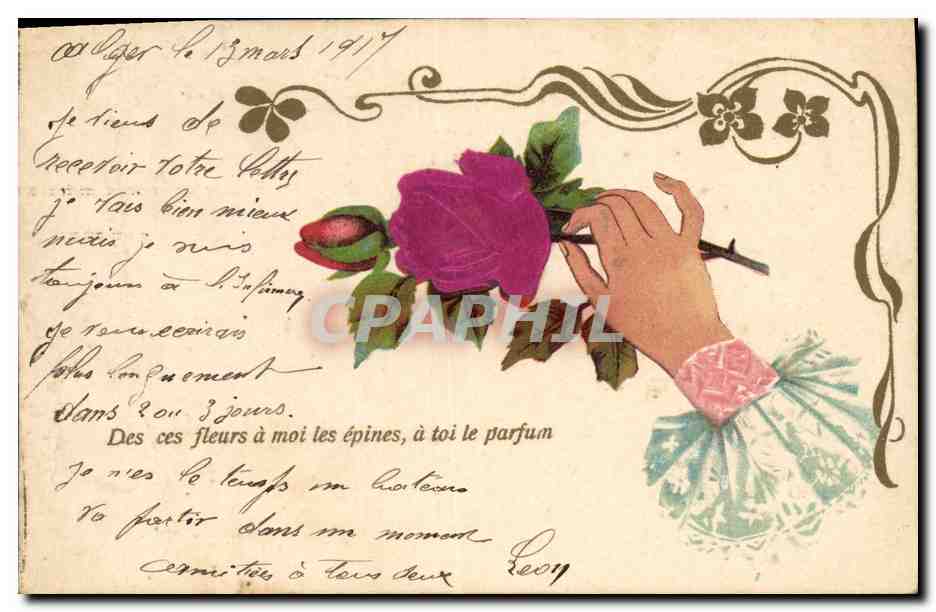 Alger le 13 mars 1917
Je viens de
recevoir votre lettre
je vais bien mieux
mais je suis
toujours à l'Infirmerie
je vous ecrirais
plus longuement
dans 2 ou 3 jours.
Des ces fleurs à moi les épines, à toi le parfum
je n'es le temps un bateau
va partir dans un moment
amitiées à tous deux Leon
CPAPHIL